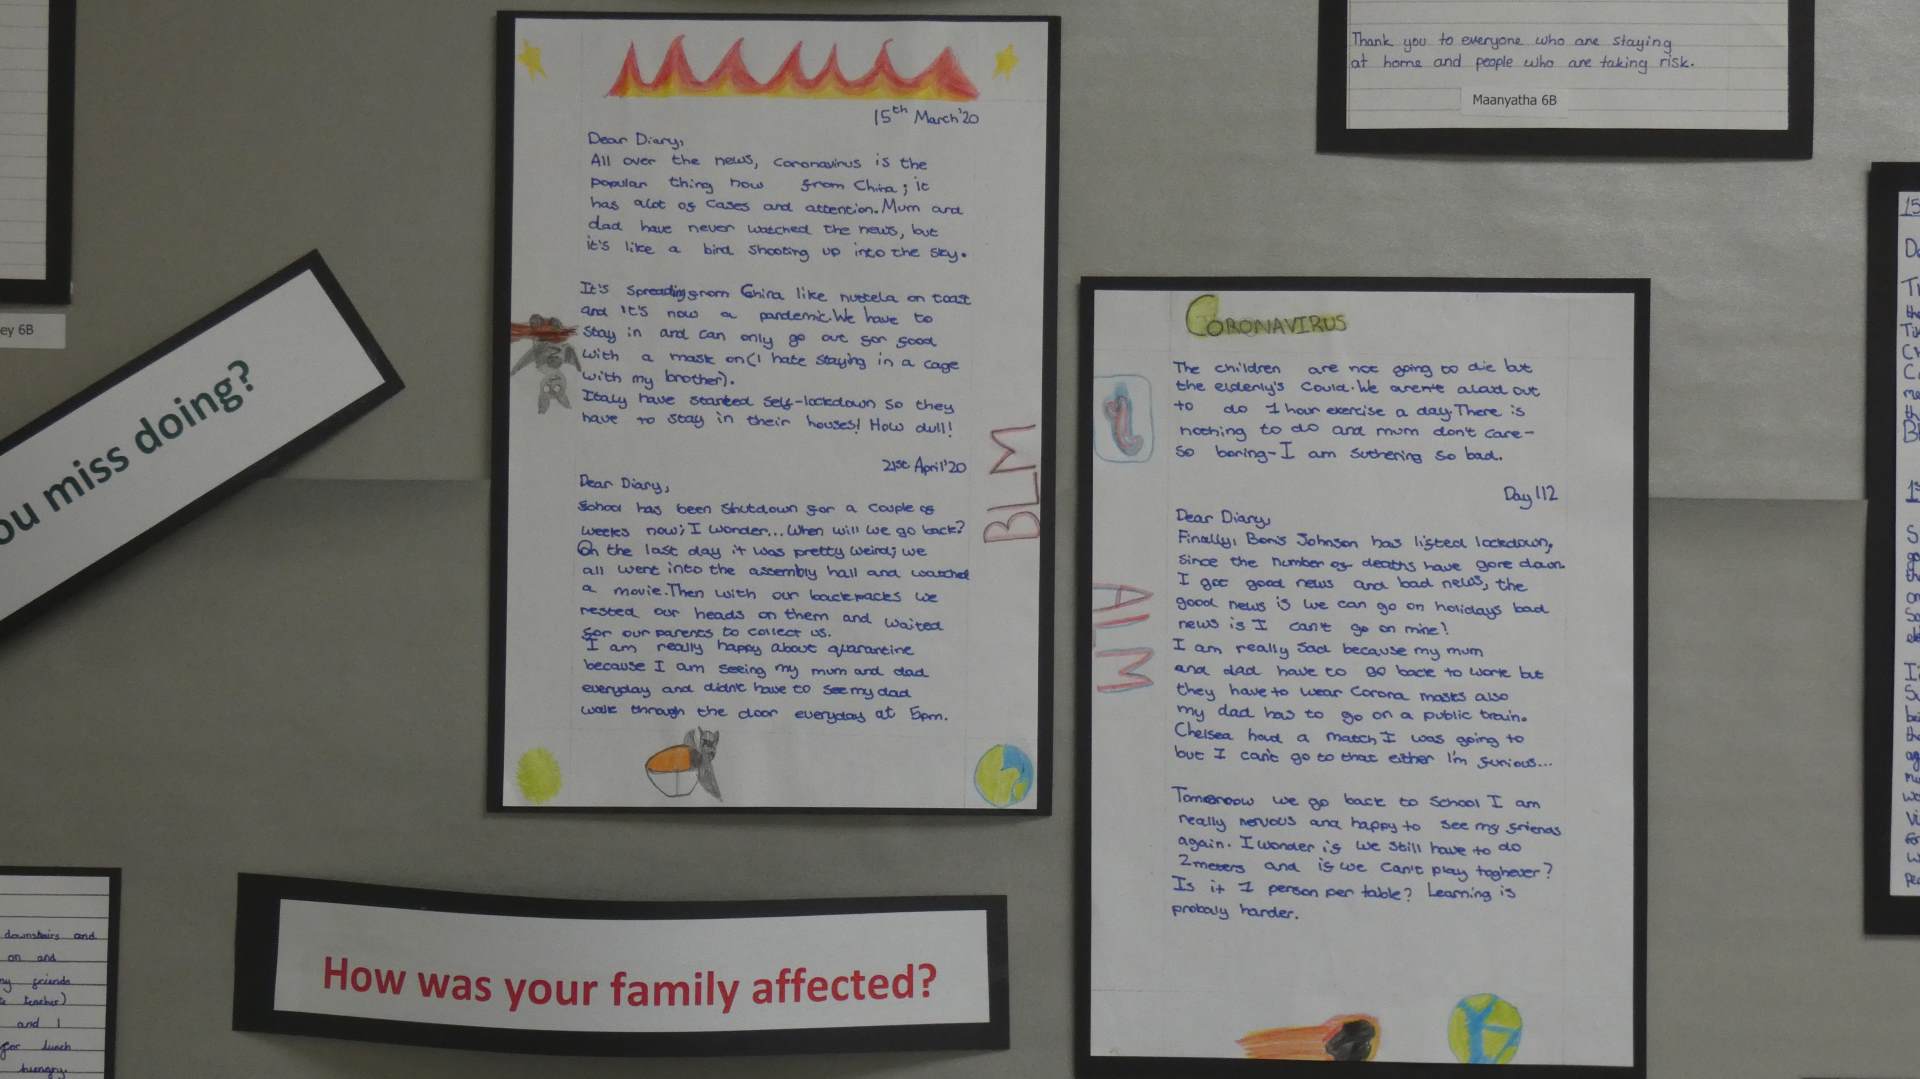 ey 6B
ou miss doing?
downstairs and
on and
my friends
teacher)
and I
for lunch
hungry.
15th March'20
Dear Diary,
All over the news, coronavirus is the
popular thing now from China; it
has alot of cases and attention. Mum and
dad have never watched the news, but
it's like a bird shooting up into the sky.
It's spreading from China like nuttela on toast
and it's now a pandemic. We have to
stay in and can only go out for food
with a mask on (I hate staying in a cage
with my brother).
Italy have started self-lockdown so they
have to stay in their houses! How dull!
21st April'20
Dear Diary,
School has been shutdown for a couple of
weeks now; I wonder... When will we go back?
On the last day it was pretty weird; we
all went into the assembly hall and watched
a movie. Then with our backpacks we
rested our heads on them and waited
for our parents to collect us.
I am really happy about quarantine
because I am seeing my mum and dad
everyday and didn't have to see my dad
walk through the door everyday at 5pm.
BLM
How was your family affected?
Thank you to everyone who are staying
at home and people who are taking risk.
Maanyatha 6B
CORONAVIRUS
The children are not going to die but
the elderly's could. We aren't alad out
to do 1 hour exercise a day. There is
nothing to do and mum don't care-
so boring- I am suthering so bad.
Day 112
Dear Diary,
Finally, Boris Johnson has lifted lockdown,
since the number of deaths have gone down.
I got good news and bad news, the
good news is we can go on holidays bad
news is I can't go on mine!
I am really sad because my mum
and dad have to go back to work but
they have to wear corona masks also
my dad has to go on a public train.
Chelsea had a match I was going to
but I can't go to that either I'm furious...
Tomorroow we go back to school I am
really nervous and happy to see my friends
again. I wonder if we still have to do
2 meters and if we can't play toghever?
Is it 1 person per table? Learning is
probaly harder.
ALM